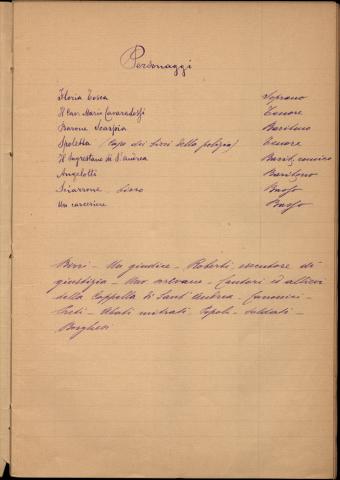 Personaggi
Floria Tosca Soprano
Il Cav. Mario Cavaradossi Tenore
Barone Scarpia Baritono
Spoletta (Capo dei birri della polizia) Tenore
Il Sagrestano di S. Andrea Barit. comico
Angelotti Baritono
Sciarrone Basso
Un carceriere Basso
Birri - Un giudice - Roberti, esecutore di
giustizia - Uno scrivano - Cantori ed allievi
della Cappella di Sant'Andrea - Canonici -
Preti - Abati mitrati, Popolo - Soldati -
Borghesi